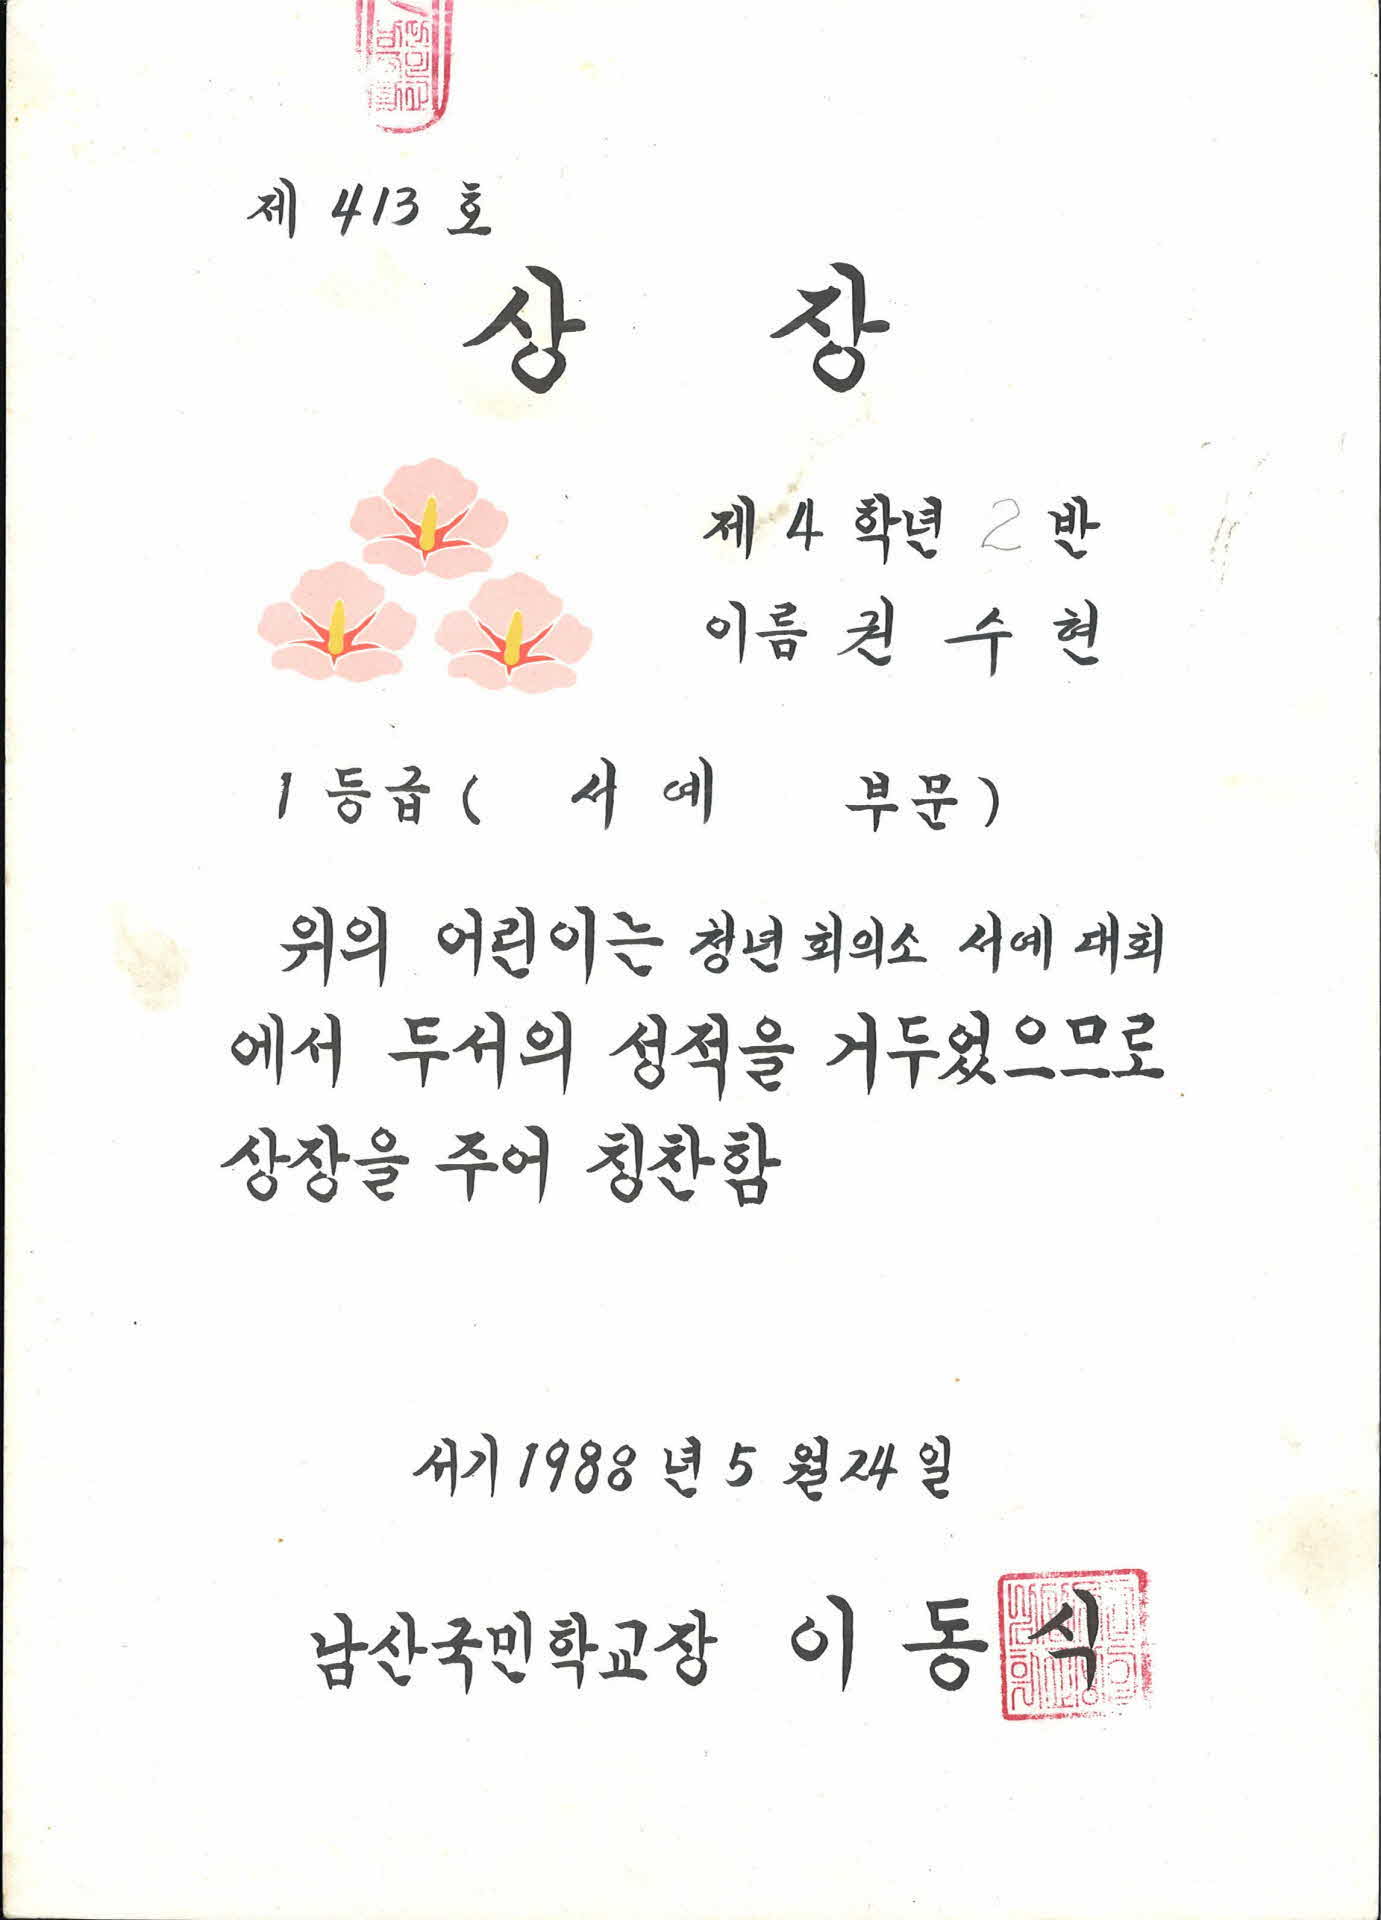 제 413 호
상 장
제 4 학년 2 반
이름 권 수 현
1 등급 ( 서 예 부문 )
위의 어린이는 청년회의소 서예 대회
에서 두서의 성적을 거두었으므로
상장을 주어 칭찬함
서기 1988 년 5 월 24 일
남산국민학교장 이 동 식